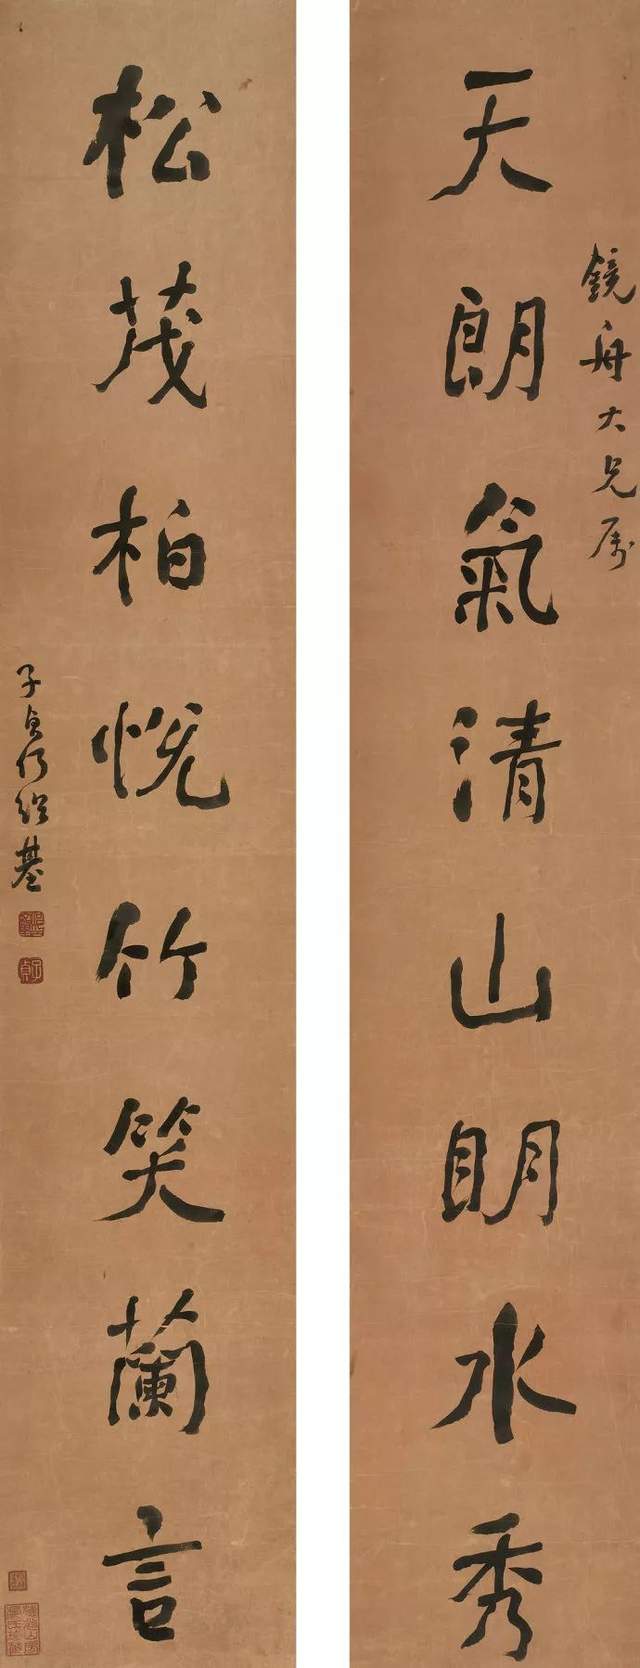 天朗氣清山眀水秀
鏡舟大兄屬
松茂柏悅竹笑蘭言
子貞何紹基